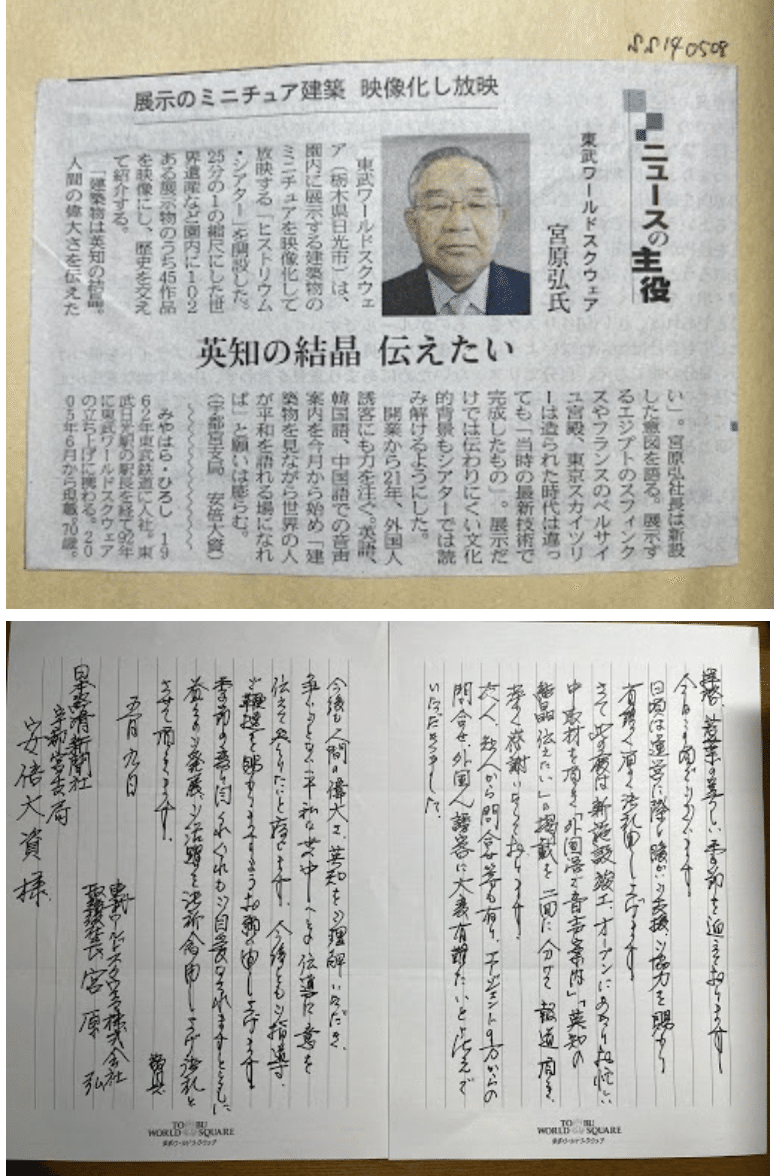 SS140508
展示のミニチュア建築 映像化し放映
ニュースの主役
東武ワールドスクウェア
宮原弘氏
東武ワールドスクウェ
ア(栃木県日光市)は、
園内に展示する建築物の
ミニチュアを映像化して
放映する「ヒストリウム
・シアター」を開設した。
25分の1の縮尺にした世
界遺産など園内に102
ある展示物のうち45作品
を映像にし、歴史を交え
て紹介する。
「建築物は英知の結晶。
人間の偉大さを伝えた
英知の結晶 伝えたい
い」。宮原弘社長は新設
した意図を語る。展示す
るエジプトのスフィンク
スやフランスのベルサイ
ユ宮殿、東京スカイツリ
ーは造られた時代は違っ
ても「当時の最新技術で
完成したもの」。展示だ
けでは伝わりにくい文化
的背景もシアターでは読
み解けるようにした。
開業から21年、外国人
誘客にも力を注ぐ。英語、
韓国語、中国語での音声
案内を今月から始め「建
築物を見ながら世界の人
が平和を語れる場になれ
ば」と願いは膨らむ。
(宇都宮支局 安倍大資)
みやはら・ひろし 19
62年東武鉄道に入社。東
武日光駅の駅長を経て92年
に東武ワールドスクウェア
の立ち上げに携わる。20
05年6月から現職。70歳。
拝啓、若葉の美しい季節を迎えております
今日この頃でございます。
日頃は運営に際し暖かいご支援ご協力を賜わり
有難く厚く御礼申し上げます。
さて此の度は新施設竣工、オープンにあたりお忙しい
中取材を頂き「外国語で音声案内」「英知の
結晶伝えたい」の掲載を二回に分けて報道頂き
厚く感謝いたしております。
友人、知人から問合せ等も有り、エージェントの方からの
問合せ、外国人誘客に大変有難たいと考えて
いただきました。
今後も人間の偉大さ、英知をご理解いただき、
争いのない平和な世の中への伝導に意を
伝えて参りたいと存じます。今後ともご指導、
ご鞭撻を賜わりますようお願い申し上げます。
季節の変り目くれぐれもご自愛なされますとともに
益々のご発展、ご活躍を御祈念申し上げ御礼と
させて頂きます。
敬具
五月九日
東武ワールドスクウェア株式会社
取締役社長 宮原 弘
日本経済新聞社
宇都宮支局
安倍大資様
TOBU
WORLD SQUARE
東武ワールドスクウェア
TOBU
WORLD SQUARE
東武ワールドスクウェア